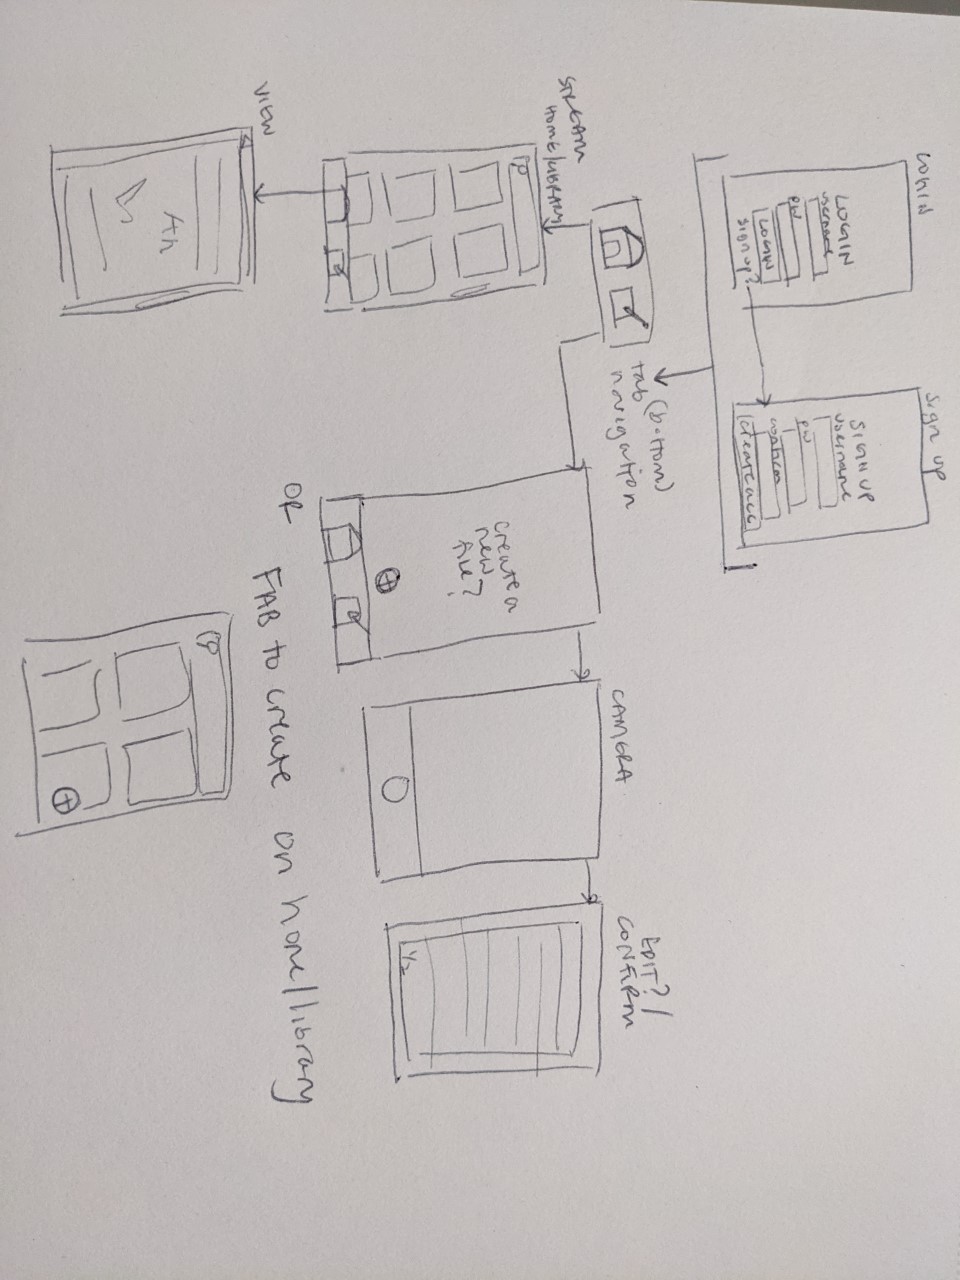 LOGIN
Sign up
LOGIN
username
pw
LOGIN
signup?
SIGN UP
username
pw
confirm
create acc
tab (bottom)
navigation
STREAM
HOME/LIBRARY
create a
new
file?
CAMERA
EDIT?/
CONFIRM
1/2
VIEW
OR
FAB to create on home/library